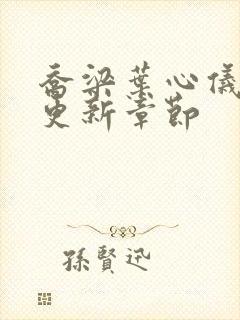 喬梁葉心儀
更新章節
孫賢迅